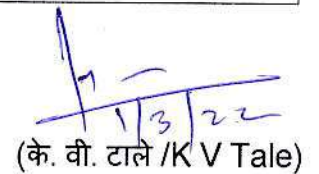 1/3/22
(के. वी. टाले /K V Tale)